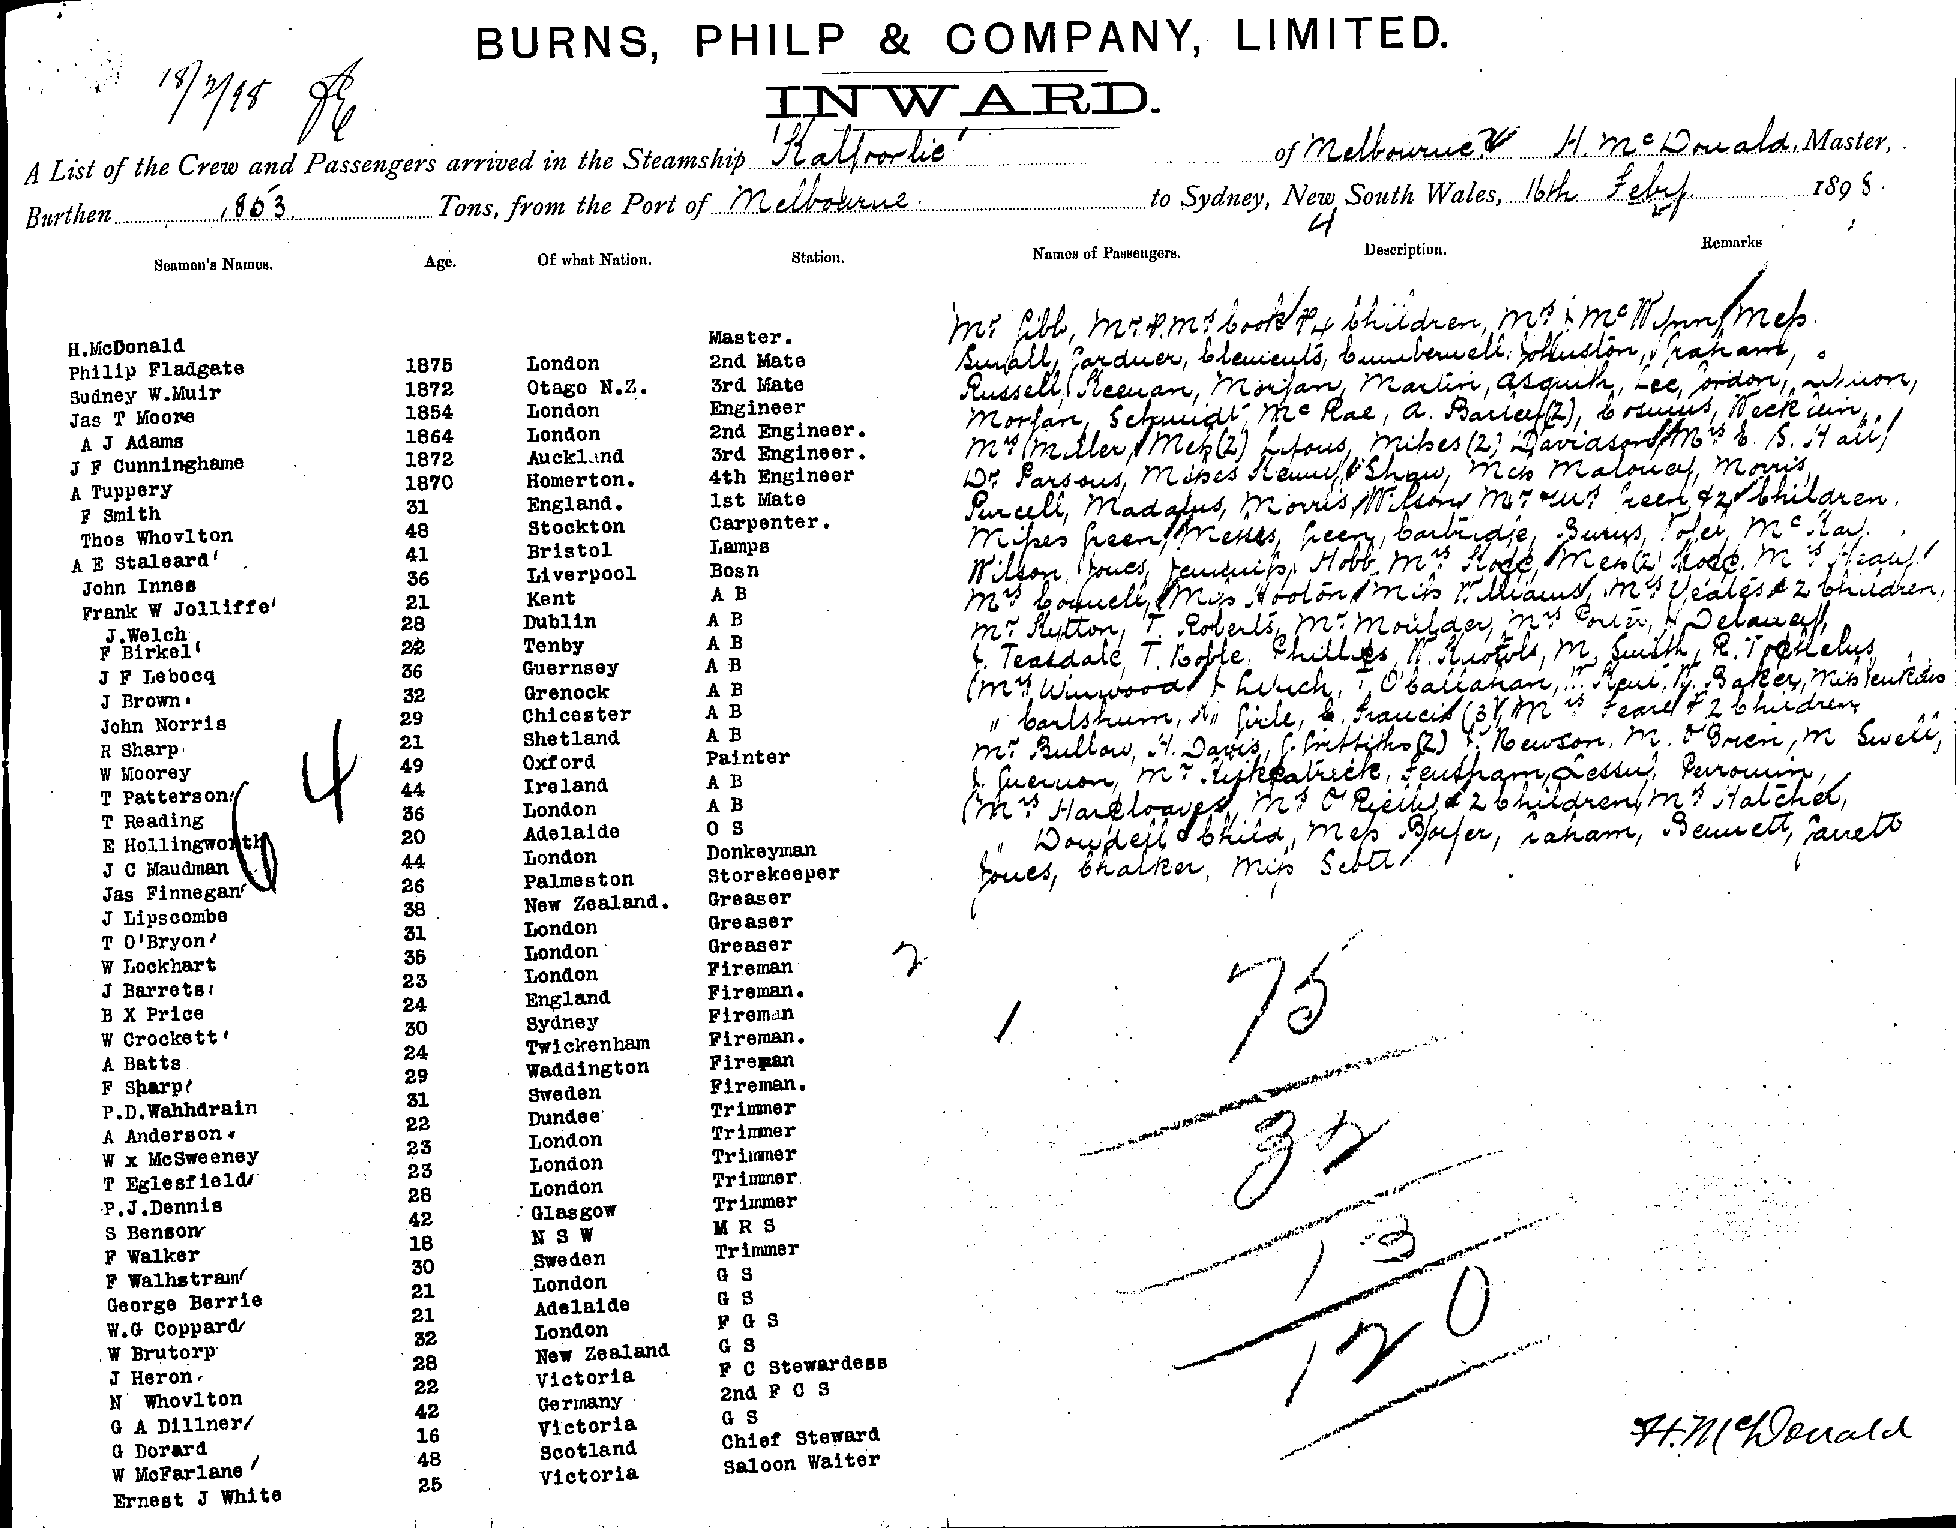 BURNS, PHILP & COMPANY, LIMITED.
18/2/98
INWARD.
A List of the Crew and Passengers arrived in the Steamship 'Kalgoorlie' of Melbourne H. McDonald, Master,
Burthen 1853 Tons, from the Port of Melbourne to Sydney, New South Wales, 16th Feby 1898.
4
Seamen's Names. Age. Of what Nation. Station. Names of Passengers. Description. Remarks
H.McDonald Master.
Philip Fladgate 1875 London 2nd Mate
Sudney W.Muir 1872 Otago N.Z. 3rd Mate
Jas T Moore 1854 London Engineer
A J Adams 1864 London 2nd Engineer.
J F Cunninghame 1872 Auckland 3rd Engineer.
A Tuppery 1870 Homerton. 4th Engineer
F Smith 31 England. 1st Mate
Thos Whovlton 48 Stockton Carpenter.
A E Staleard' 41 Bristol Lamps
John Innes 36 Liverpool Bosn
Frank W Jolliffe' 21 Kent A B
J.Welch 28 Dublin A B
F Birkel' 22 Tenby A B
J F Lebocq 36 Guernsey A B
J Brown. 32 Grenock A B
John Norris 29 Chicester A B
R Sharp 21 Shetland A B
W Moorey 49 Oxford Painter
T Patterson 44 Ireland A B
T Reading 36 London A B
E Hollingworth 20 Adelaide O S
J C Maudman 44 London Donkeyman
Jas Finnegan 26 Palmeston Storekeeper
J Lipscombe 38 New Zealand. Greaser
T O'Bryon' 31 London Greaser
W Lockhart 36 London Greaser
J Barrets 23 London Fireman
B X Price 24 England Fireman.
W Crockett' 30 Sydney Fireman
A Batts 24 Twickenham Fireman.
F Sharp' 29 Waddington Fireman
P.D.Wahhdrain 31 Sweden Fireman.
A Anderson. 22 Dundee Trimmer
W x McSweeney 23 London Trimmer
T Eglesfield 23 London Trimmer
P.J.Dennis 28 London Trimmer
S Benson 42 Glasgow Trimmer
F Walker 18 N S W M R S
F Walhstram 30 Sweden Trimmer
George Berrie 21 London G S
W.G Coppard 21 Adelaide G S
W Brutorp 32 London F G S
J Heron. 28 New Zealand G S
N Whovlton 22 Victoria F C Stewardess
G A Dillner 42 Germany 2nd F C S
G Dorard 16 Victoria G S
W McFarlane 48 Scotland Chief Steward
Ernest J White 25 Victoria Saloon Waiter
4
Mr Gibb, Mr & Mrs Cook & 4 Children, Mrs & Mc Wynn, Mess.
Small, Gardner, Clements, Camberwell, Johnston, Graham,
Russell, Keenan, Morgan, Martin, Asquith, Lee, Gordon,
Morgan, Schmidt, McRae, A. Bailey (2),
Mrs Miller, Mess (2) Misses (2) Davidson, Mrs E. S. Hall
Dr Parsons, Misses Shaw, Mess Maloney, Morris,
Purcell, Madagus, Morris, Wilson, Mr & Mrs Green & 2 Children.
Misses Green, Messes, Green, Cartridge, Burns, McKay
Wilson, Jones, Jennings, Hobb, Mrs Rode, Mess (2) Rode, Mrs Heady
Mrs Connell, Miss Hooton, Miss Williams, Mrs Yeates & 2 Children,
Mr Hytton, T. Roberts, Mr Moulder, Mrs Porter, Delaney,
J. Teasdale, T. Noble, Phillips, W. Knowls, M. Smith, R.
(Mrs Winwood, Lynch, T. O'Callahan, Baker, Miss
" Carlshum, Girle, E. Francis (3), Mrs Feare & 2 Children
Mr Bullow, H. Davis, J. Griffiths (2) Newson, M. O'Brien, M Swell,
J. Guernon, Mr Kirkpatrick, Fentham,
(Mrs Hargreaves, Mrs O'Rielly & 2 Children, Mrs Hatchel,
" Dowdell & Child, Mess Bolger, Graham, Bennett, Garrett
Jones, Chalker, Miss Scott
2
1
75
32
13
120
H. McDonald